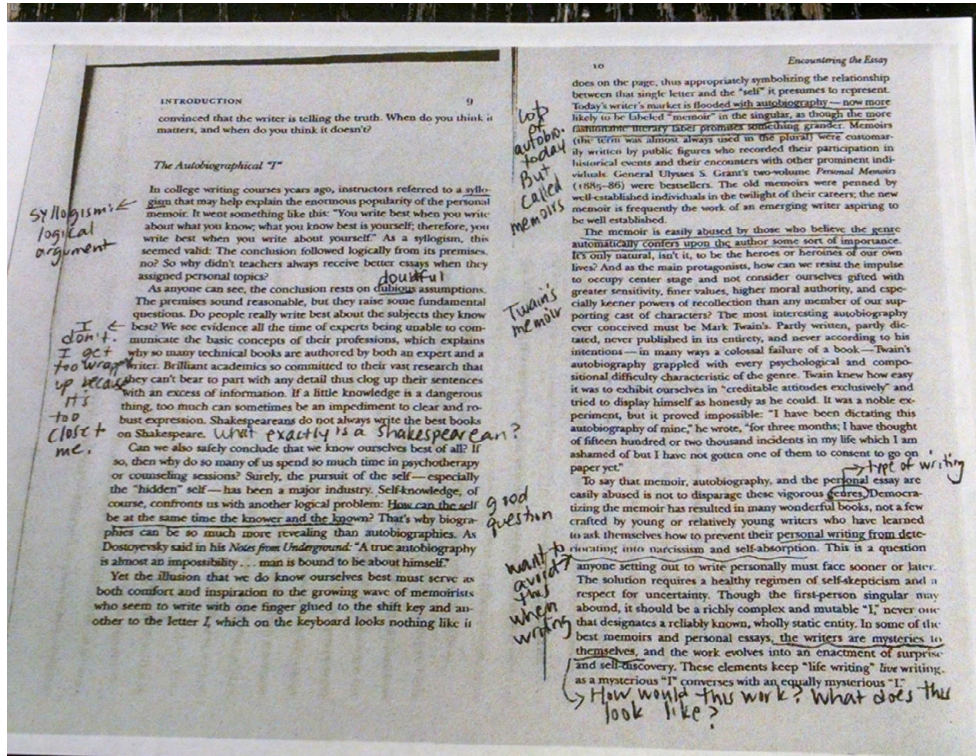 INTRODUCTION 9
convinced that the writer is telling the truth. When do you think it
matters, and when do you think it doesn't?
The Autobiographical "I"
In college writing courses years ago, instructors referred to a syllo-
gism that may help explain the enormous popularity of the personal
memoir. It went something like this: "You write best when you write
about what you know; what you know best is yourself; therefore, you
write best when you write about yourself." As a syllogism, this
seemed valid: The conclusion followed logically from its premises,
no? So why didn't teachers always receive better essays when they
assigned personal topics?
syllogism:
logical
argument
doubtful
As anyone can see, the conclusion rests on dubious assumptions.
The premises sound reasonable, but they raise some fundamental
questions. Do people really write best about the subjects they know
best? We see evidence all the time of experts being unable to com-
municate the basic concepts of their professions, which explains
why so many technical books are authored by both an expert and a
writer. Brilliant academics so committed to their vast research that
they can't bear to part with any detail thus clog up their sentences
with an excess of information. If a little knowledge is a dangerous
thing, too much can sometimes be an impediment to clear and ro-
bust expression. Shakespeareans do not always write the best books
on Shakespeare. What exactly is a shakespearean?
I
don't.
I get
too wrapped
up because
it's
too
close to
me.
Can we also safely conclude that we know ourselves best of all? If
so, then why do so many of us spend so much time in psychotherapy
or counseling sessions? Surely, the pursuit of the self—especially
the "hidden" self—has been a major industry. Self-knowledge, of
course, confronts us with another logical problem: How can the self
be at the same time the knower and the known? That's why biogra-
phies can be so much more revealing than autobiographies. As
Dostoyevsky said in his Notes from Underground: "A true autobiography
is almost an impossibility . . . man is bound to be about himself."
good
question
Yet the illusion that we do know ourselves best must serve as
both comfort and inspiration to the growing wave of memoirists
who seem to write with one finger glued to the shift key and an-
other to the letter I, which on the keyboard looks nothing like it
10 Encountering the Essay
does on the page, thus appropriately symbolizing the relationship
between that single letter and the "self" it presumes to represent.
Today's writer's market is flooded with autobiography—now more
likely to be labeled "memoir" in the singular, as though the more
fashionable literary label promises something grander. Memoirs
(the term was almost always used in the plural) were customar-
ily written by public figures who recorded their participation in
historical events and their encounters with other prominent indi-
viduals. General Ulysses S. Grant's two-volume Personal Memoirs
(1885–86) were bestsellers. The old memoirs were penned by
well-established individuals in the twilight of their careers; the new
memoir is frequently the work of an emerging writer aspiring to
be well established.
lots
of
autobio.
today
But
called
memoirs
The memoir is easily abused by those who believe the genre
automatically confers upon the author some sort of importance.
It's only natural, isn't it, to be the heroes or heroines of our own
lives? And as the main protagonists, how can we resist the impulse
to occupy center stage and not consider ourselves gifted with
greater sensitivity, finer values, higher moral authority, and espe-
cially keener powers of recollection than any member of our sup-
porting cast of characters? The most interesting autobiography
ever conceived must be Mark Twain's. Partly written, partly dic-
tated, never published in its entirety, and never according to his
intentions—in many ways a colossal failure of a book—Twain's
autobiography grappled with every psychological and compo-
sitional difficulty characteristic of the genre. Twain knew how easy
it was to exhibit ourselves in "creditable attitudes exclusively" and
tried to display himself as honestly as he could. It was a noble ex-
periment, but it proved impossible: "I have been dictating this
autobiography of mine," he wrote, "for three months; I have thought
of fifteen hundred or two thousand incidents in my life which I am
ashamed of but I have not gotten one of them to consent to go on
paper yet."
Twain's
memoir
type of writing
To say that memoir, autobiography, and the personal essay are
easily abused is not to disparage these vigorous genres. Democra-
tizing the memoir has resulted in many wonderful books, not a few
crafted by young or relatively young writers who have learned
to ask themselves how to prevent their personal writing from dete-
riorating into narcissism and self-absorption. This is a question
anyone setting out to write personally must face sooner or later.
The solution requires a healthy regimen of self-skepticism and a
respect for uncertainty. Though the first-person singular may
abound, it should be a richly complex and mutable "I," never one
that designates a reliably known, wholly static entity. In some of the
best memoirs and personal essays, the writers are mysteries to
themselves, and the work evolves into an enactment of surprise
and self-discovery. These elements keep "life writing" live writing,
as a mysterious "I" converses with an equally mysterious "I."
want to
avoid
this
when
writing
How would this work? What does this
look like?